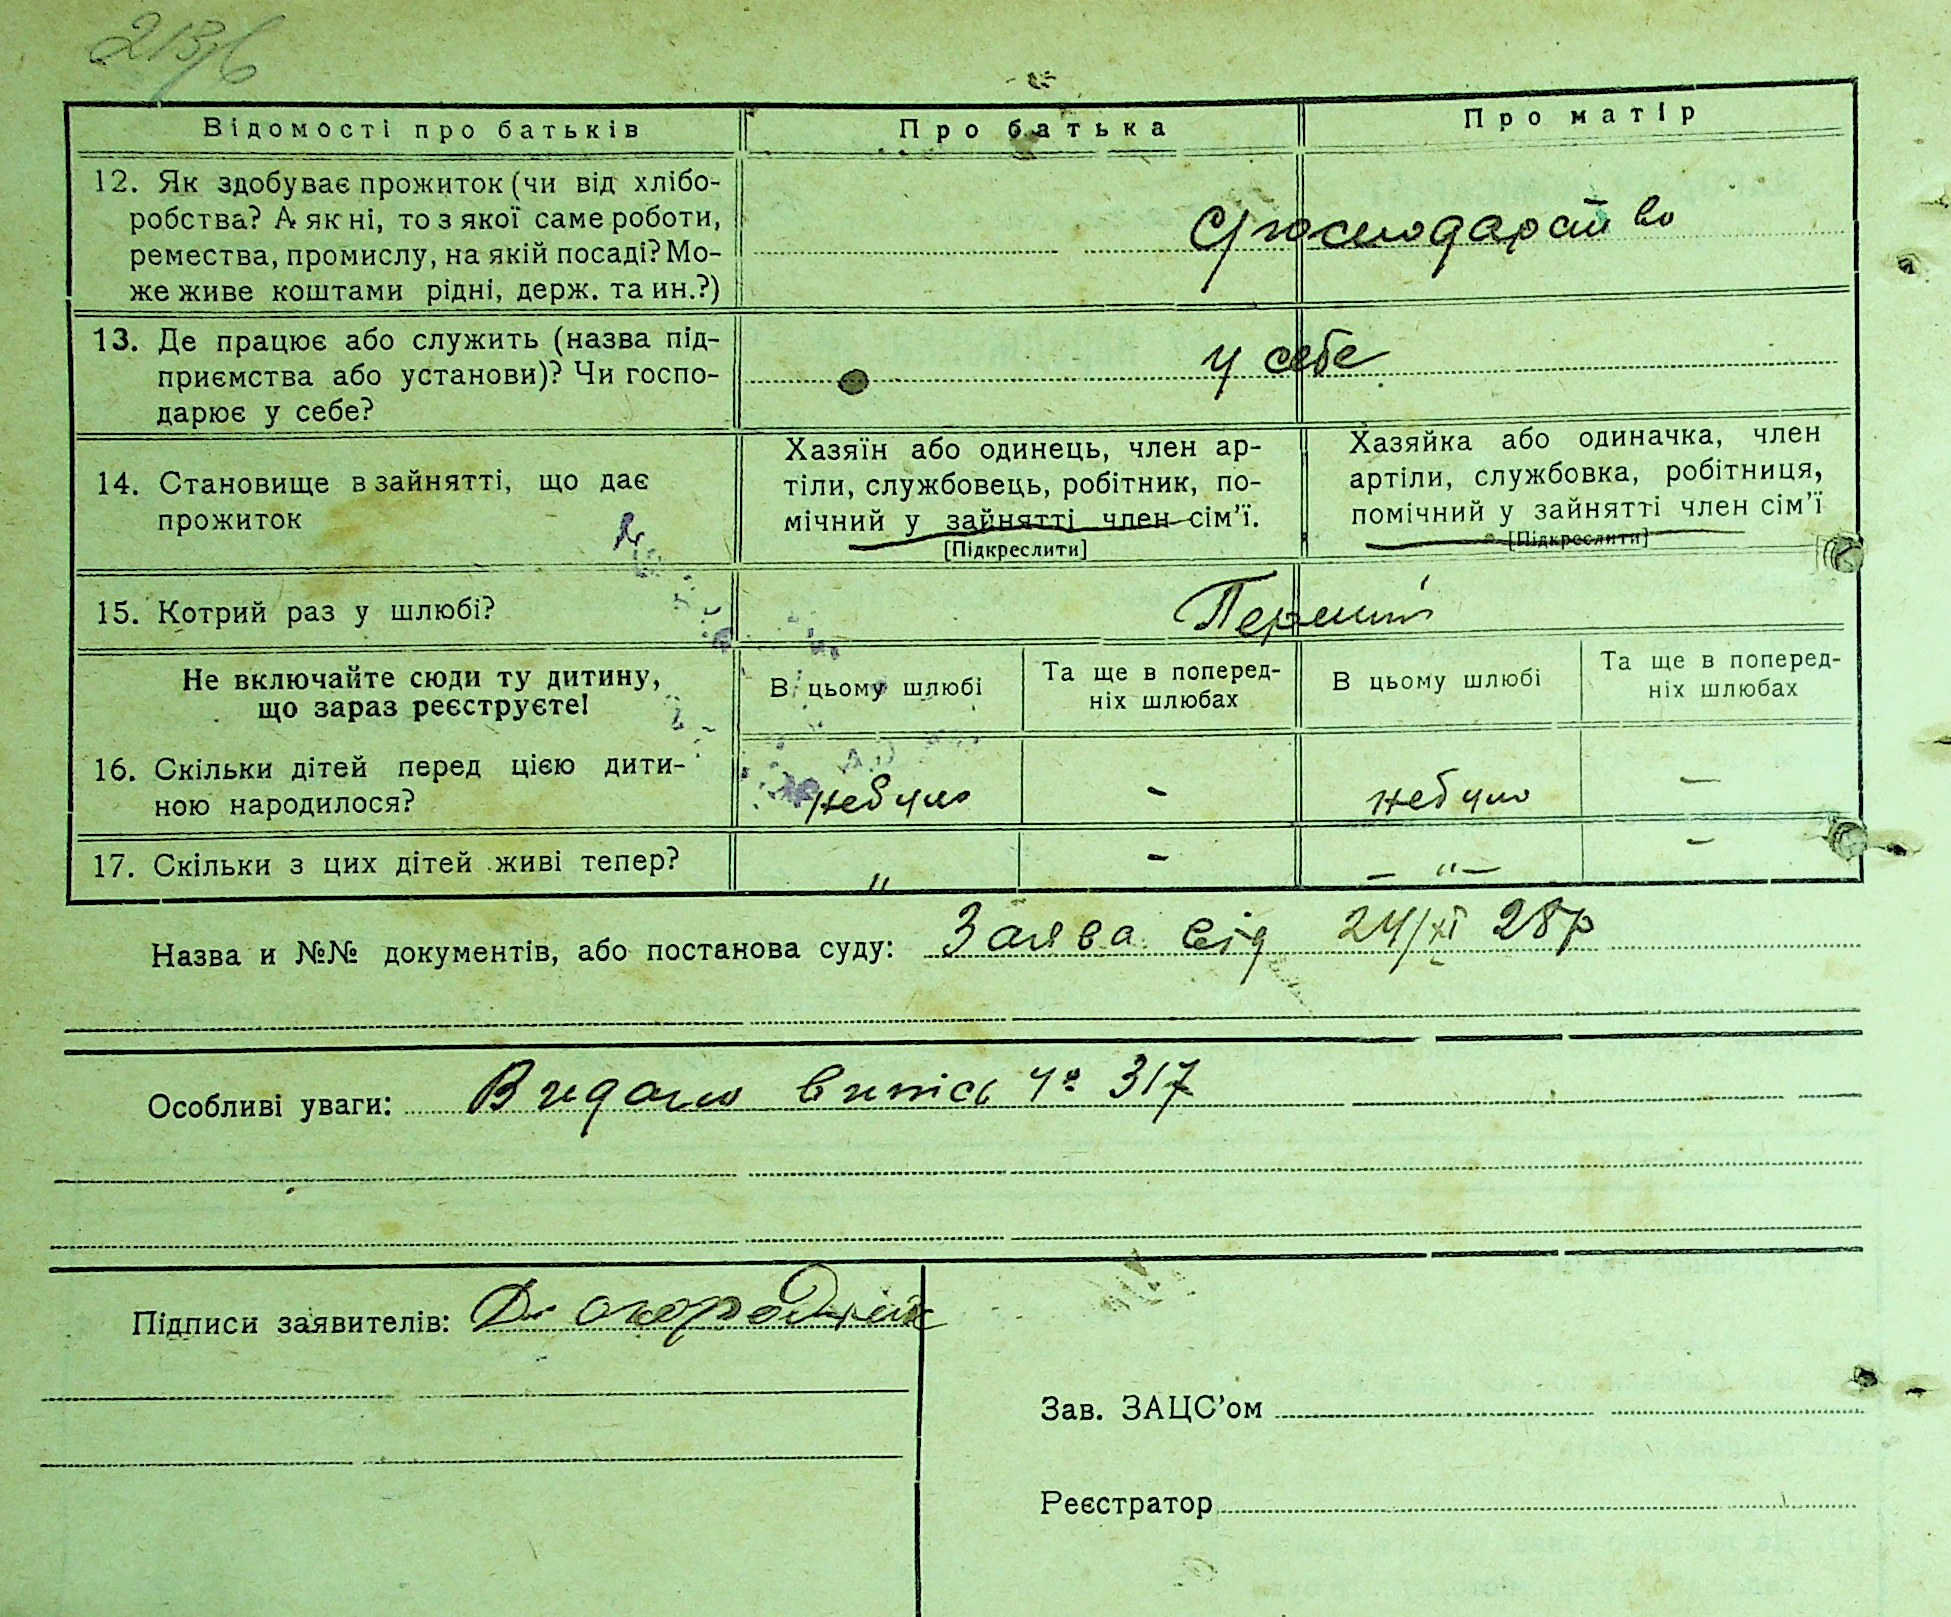 Відомості про батьків
Про батька
Про матір
12. Як здобуває прожиток (чи від хлібо-
робства? А як ні, то з якої саме роботи,
ремества, промислу, на якій посаді? Мо-
же живе коштами рідні, держ. та ин.?)
С/господарство
13. Де працює або служить (назва під-
приємства або установи)? Чи госпо-
дарює у себе?
у себе
14. Становище в зайнятті, що дає
прожиток
Хазяїн або одинець, член ар-
тіли, службовець, робітник, по-
мічний у зайнятті член сім'ї.
[Підкреслити]
Хазяйка або одиначка, член
артіли, службовка, робітниця,
помічний у зайнятті член сім'ї
[Підкреслити]
15. Котрий раз у шлюбі?
Перший
Не включайте сюди ту дитину,
що зараз реєструєте!
В цьому шлюбі
Та ще в поперед-
ніх шлюбах
В цьому шлюбі
Та ще в поперед-
ніх шлюбах
16. Скільки дітей перед цією дити-
ною народилося?
небуло - небуло -
17. Скільки з цих дітей живі тепер?
" - - " - -
Назва и №№ документів, або постанова суду: Заява від 24/XI 28р
Особливі уваги: Видано випись № 317
Підписи заявителів: Д. Огородник
Зав. ЗАЦС'ом
Реєстратор